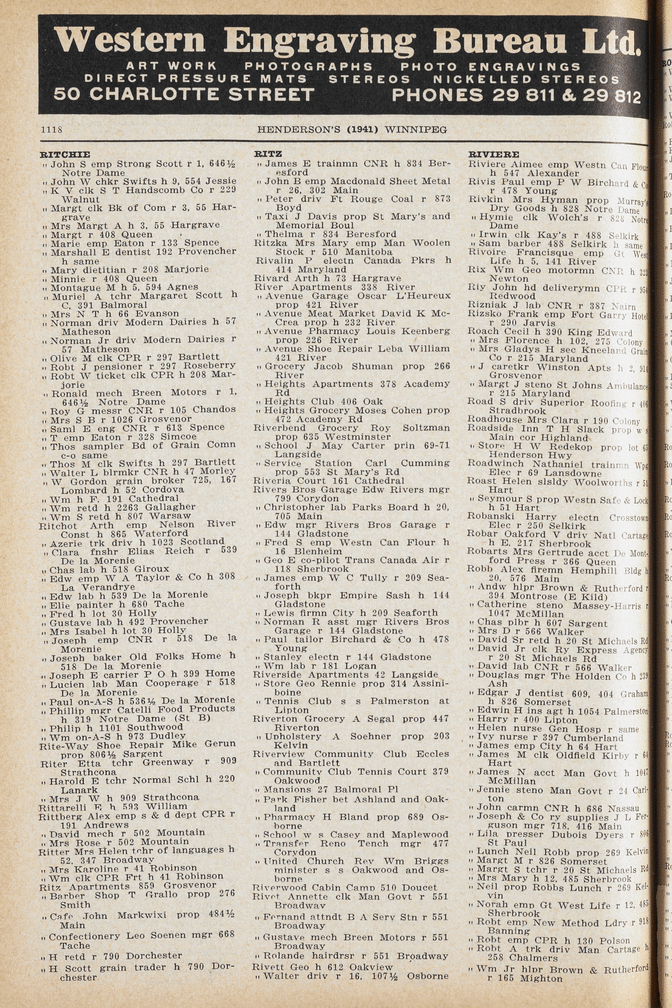 Western Engraving Bureau Ltd.
ART WORK PHOTOGRAPHS PHOTO ENGRAVINGS
DIRECT PRESSURE MATS STEREOS NICKELLED STEREOS
50 CHARLOTTE STREET PHONES 29 811 & 29 812
1118 HENDERSON'S (1941) WINNIPEG
RITCHIE
„ John S emp Strong Scott r 1, 646½
Notre Dame
„ John W chkr Swifts h 9, 554 Jessie
„ K V clk S T Handscomb Co r 229
Walnut
„ Margt clk Bk of Com r 3, 55 Har-
grave
„ Mrs Margt A h 3, 55 Hargrave
„ Margt r 408 Queen
„ Marie emp Eaton r 133 Spence
„ Marshall E dentist 192 Provencher
h same
„ Mary dietitian r 208 Marjorie
„ Minnie r 408 Queen
„ Montague M h 5, 594 Agnes
„ Muriel A tchr Margaret Scott h
C, 391 Balmoral
„ Mrs N T h 66 Evanson
„ Norman driv Modern Dairies h 57
Matheson
„ Norman Jr driv Modern Dairies r
57 Matheson
„ Olive M clk CPR r 297 Bartlett
„ Robt J pensioner r 297 Roseberry
„ Robt W ticket clk CPR h 208 Mar-
jorie
„ Ronald mech Breen Motors r 1,
646½ Notre Dame
„ Roy G messr CNR r 105 Chandos
„ Mrs S B r 1026 Grosvenor
„ Saml E eng CNR r 613 Spence
„ T emp Eaton r 328 Simcoe
„ Thos sampler Bd of Grain Comn
c-o same
„ Thos M clk Swifts h 297 Bartlett
„ Walter L blrmkr CNR h 47 Morley
„ W Gordon grain broker 725, 167
Lombard h 52 Cordova
„ Wm h F, 191 Cathedral
„ Wm retd h 2263 Gallagher
„ Wm S retd h 807 Warsaw
Ritchot Arth emp Nelson River
Const h 865 Waterford
„ Azerie trk driv h 1023 Scotland
„ Clara fnshr Elias Reich r 539
De la Morenie
„ Chas lab h 518 Giroux
„ Edw emp W A Taylor & Co h 308
La Verandrye
„ Edw lab h 539 De la Morenie
„ Elie painter h 680 Tache
„ Fred h lot 30 Holly
„ Gustave lab h 492 Provencher
„ Mrs Isabel h lot 30 Holly
„ Joseph emp CNR r 518 De la
Morenie
„ Joseph baker Old Folks Home h
518 De la Morenie
„ Joseph E carrier P O h 399 Home
„ Lucien lab Man Cooperage r 518
De la Morenie
„ Paul on-A-S h 536½ De la Morenie
„ Phillip mgr Catelli Food Products
h 319 Notre Dame (St B)
„ Philip h 1101 Southwood
„ Wm on-A-S h 973 Dudley
Rite-Way Shoe Repair Mike Gerun
prop 806½ Sargent
Riter Etta tchr Greenway r 909
Strathcona
„ Harold E tchr Normal Schl h 220
Lanark
„ Mrs J W h 909 Strathcona
Rittarelli E h 593 William
Rittberg Alex emp s & d dept CPR r
191 Andrews
„ David mech r 502 Mountain
„ Mrs Rose r 502 Mountain
Ritter Mrs Helen tchr of languages h
52, 347 Broadway
„ Mrs Karoline r 41 Robinson
„ Wm clk CPR Frt h 41 Robinson
Ritz Apartments 859 Grosvenor
„ Barber Shop T Grallo prop 276
Smith
„ Cafe John Markwixi prop 484½
Main
„ Confectionery Leo Soenen mgr 668
Tache
„ H retd r 790 Dorchester
„ H Scott grain trader h 790 Dor-
chester
RITZ
„ James E trainmn CNR h 834 Ber-
esford
„ John B emp Macdonald Sheet Metal
r 26, 302 Main
„ Peter driv Ft Rouge Coal r 873
Boyd
„ Taxi J Davis prop St Mary's and
Memorial Boul
„ Thelma r 834 Beresford
Ritzka Mrs Mary emp Man Woolen
Stock r 510 Manitoba
Rivalin P electn Canada Pkrs h
414 Maryland
Rivard Arth h 73 Hargrave
River Apartments 338 River
„ Avenue Garage Oscar L'Heureux
prop 421 River
„ Avenue Meat Market David K Mc-
Crea prop h 232 River
„ Avenue Pharmacy Louis Keenberg
prop 226 River
„ Avenue Shoe Repair Leba William
421 River
„ Grocery Jacob Shuman prop 266
River
„ Heights Apartments 378 Academy
Rd
„ Heights Club 406 Oak
„ Heights Grocery Moses Cohen prop
472 Academy Rd
Riverbend Grocery Roy Soltzman
prop 635 Westminster
„ School J May Carter prin 69-71
Langside
„ Service Station Carl Cumming
prop 553 St Mary's Rd
Riveria Court 161 Cathedral
Rivers Bros Garage Edw Rivers mgr
799 Corydon
„ Christopher lab Parks Board h 20,
705 Main
„ Edw mgr Rivers Bros Garage r
144 Gladstone
„ Fred S emp Westn Can Flour h
16 Blenheim
„ Geo E co-pilot Trans Canada Air r
118 Sherbrook
„ James emp W C Tully r 209 Sea-
forth
„ Joseph bkpr Empire Sash h 144
Gladstone
„ Lewis firmn City h 209 Seaforth
„ Norman R asst mgr Rivers Bros
Garage r 144 Gladstone
„ Paul tailor Birchard & Co h 478
Young
„ Stanley electn r 144 Gladstone
„ Wm lab r 181 Logan
Riverside Apartments 42 Langside
„ Store Geo Rennie prop 314 Assini-
boine
„ Tennis Club s s Palmerston at
Lipton
Riverton Grocery A Segal prop 447
Riverton
„ Upholstery A Soehner prop 203
Kelvin
Riverview Community Club Eccles
and Bartlett
„ Community Club Tennis Court 379
Oakwood
„ Mansions 27 Balmoral Pl
„ Park Fisher bet Ashland and Oak-
land
„ Pharmacy H Bland prop 689 Os-
borne
„ School w s Casey and Maplewood
„ Transfer Reno Tench mgr 477
Corydon
„ United Church Rev Wm Briggs
minister s s Oakwood and Os-
borne
Riverwood Cabin Camp 510 Doucet
Rivet Annette clk Man Govt r 551
Broadway
„ Fernand attndt B A Serv Stn r 551
Broadway
„ Gustave mech Breen Motors r 551
Broadway
„ Rolande hairdrsr r 551 Broadway
Rivett Geo h 612 Oakview
„ Walter driv r 16, 107½ Osborne
RIVIERE
Riviere Aimee emp Westn Can Flour
h 547 Alexander
Rivis Paul emp P W Birchard & Co
r 478 Young
Rivkin Mrs Hyman prop Murray's
Dry Goods h 828 Notre Dame
„ Hymie clk Wolch's r 828 Notre
Dame
„ Irwin clk Kay's r 488 Selkirk
„ Sam barber 488 Selkirk h same
Rivoire Francisque emp Gt West
Life h 5, 441 River
Rix Wm Geo motormn CNR h
Newton
Riy John hd deliverymn CPR r
Redwood
Rizniak J lab CNR r 387 Nairn
Rizsko Frank emp Fort Garry Hotel
r 290 Jarvis
Roach Cecil h 390 King Edward
„ Mrs Florence h 102, 275 Colony
„ Mrs Gladys H sec Kneeland Grain
Co r 215 Maryland
„ J caretkr Winston Apts h 2,
Grosvenor
„ Margt J steno St Johns Ambulance
r 215 Maryland
Road S driv Superior Roofing r
Stradbrook
Roadhouse Mrs Clara r 190 Colony
Roadside Inn T H Slack prop w s
Main cor Highland
„ Store H W Redekop prop lot
Henderson Hwy
Roadwinch Nathaniel trainmn Wpg
Elec r 69 Lansdowne
Roast Helen slsldy Woolworths r
Hart
„ Seymour S prop Westn Safe & Lock
h 51 Hart
Robanski Harry electn Crosstown
Elec r 250 Selkirk
Robar Oakford V driv Natl Cartage
h E, 217 Sherbrook
Robarts Mrs Gertrude acct De Mont-
ford Press r 366 Queen
Robb Alex firemn Hemphill Bldg h
20, 576 Main
„ Andw hlpr Brown & Rutherford r
394 Montrose (E Kild)
„ Catherine steno Massey-Harris r
1047 McMillan
„ Chas plbr h 607 Sargent
„ Mrs D r 566 Walker
„ David Sr retd h 20 St Michaels Rd
„ David Jr clk Ry Express Agency
r 20 St Michaels Rd
„ David lab CNR r 566 Walker
„ Douglas mgr The Holden Co h
Ash
„ Edgar J dentist 609, 404 Graham
h 826 Somerset
„ Edwin H ins agt h 1054 Palmerston
„ Harry r 400 Lipton
„ Helen nurse Gen Hosp r same
„ Ivy nurse r 397 Cumberland
„ James emp City h 64 Hart
„ James M clk Oldfield Kirby r 64
Hart
„ James N acct Man Govt h 1047
McMillan
„ Jennie steno Man Govt r 24 Carl-
ton
„ John carmn CNR h 686 Nassau
„ Joseph & Co ry supplies J L Fer-
guson mgr 718, 416 Main
„ Lila presser Dubois Dyers r
St Paul
„ Lunch Neil Robb prop 269 Kelvin
„ Margt M r 826 Somerset
„ Margt S tchr r 20 St Michaels Rd
„ Mrs Mary h 12, 485 Sherbrook
„ Neil prop Robbs Lunch r 269 Kel-
vin
„ Norah emp Gt West Life r 12, 485
Sherbrook
„ Robt emp New Method Ldry r
Banning
„ Robt emp CPR h 130 Polson
„ Robt A trk driv Man Cartage h
258 Chalmers
„ Wm Jr hlpr Brown & Rutherford
r 165 Mighton